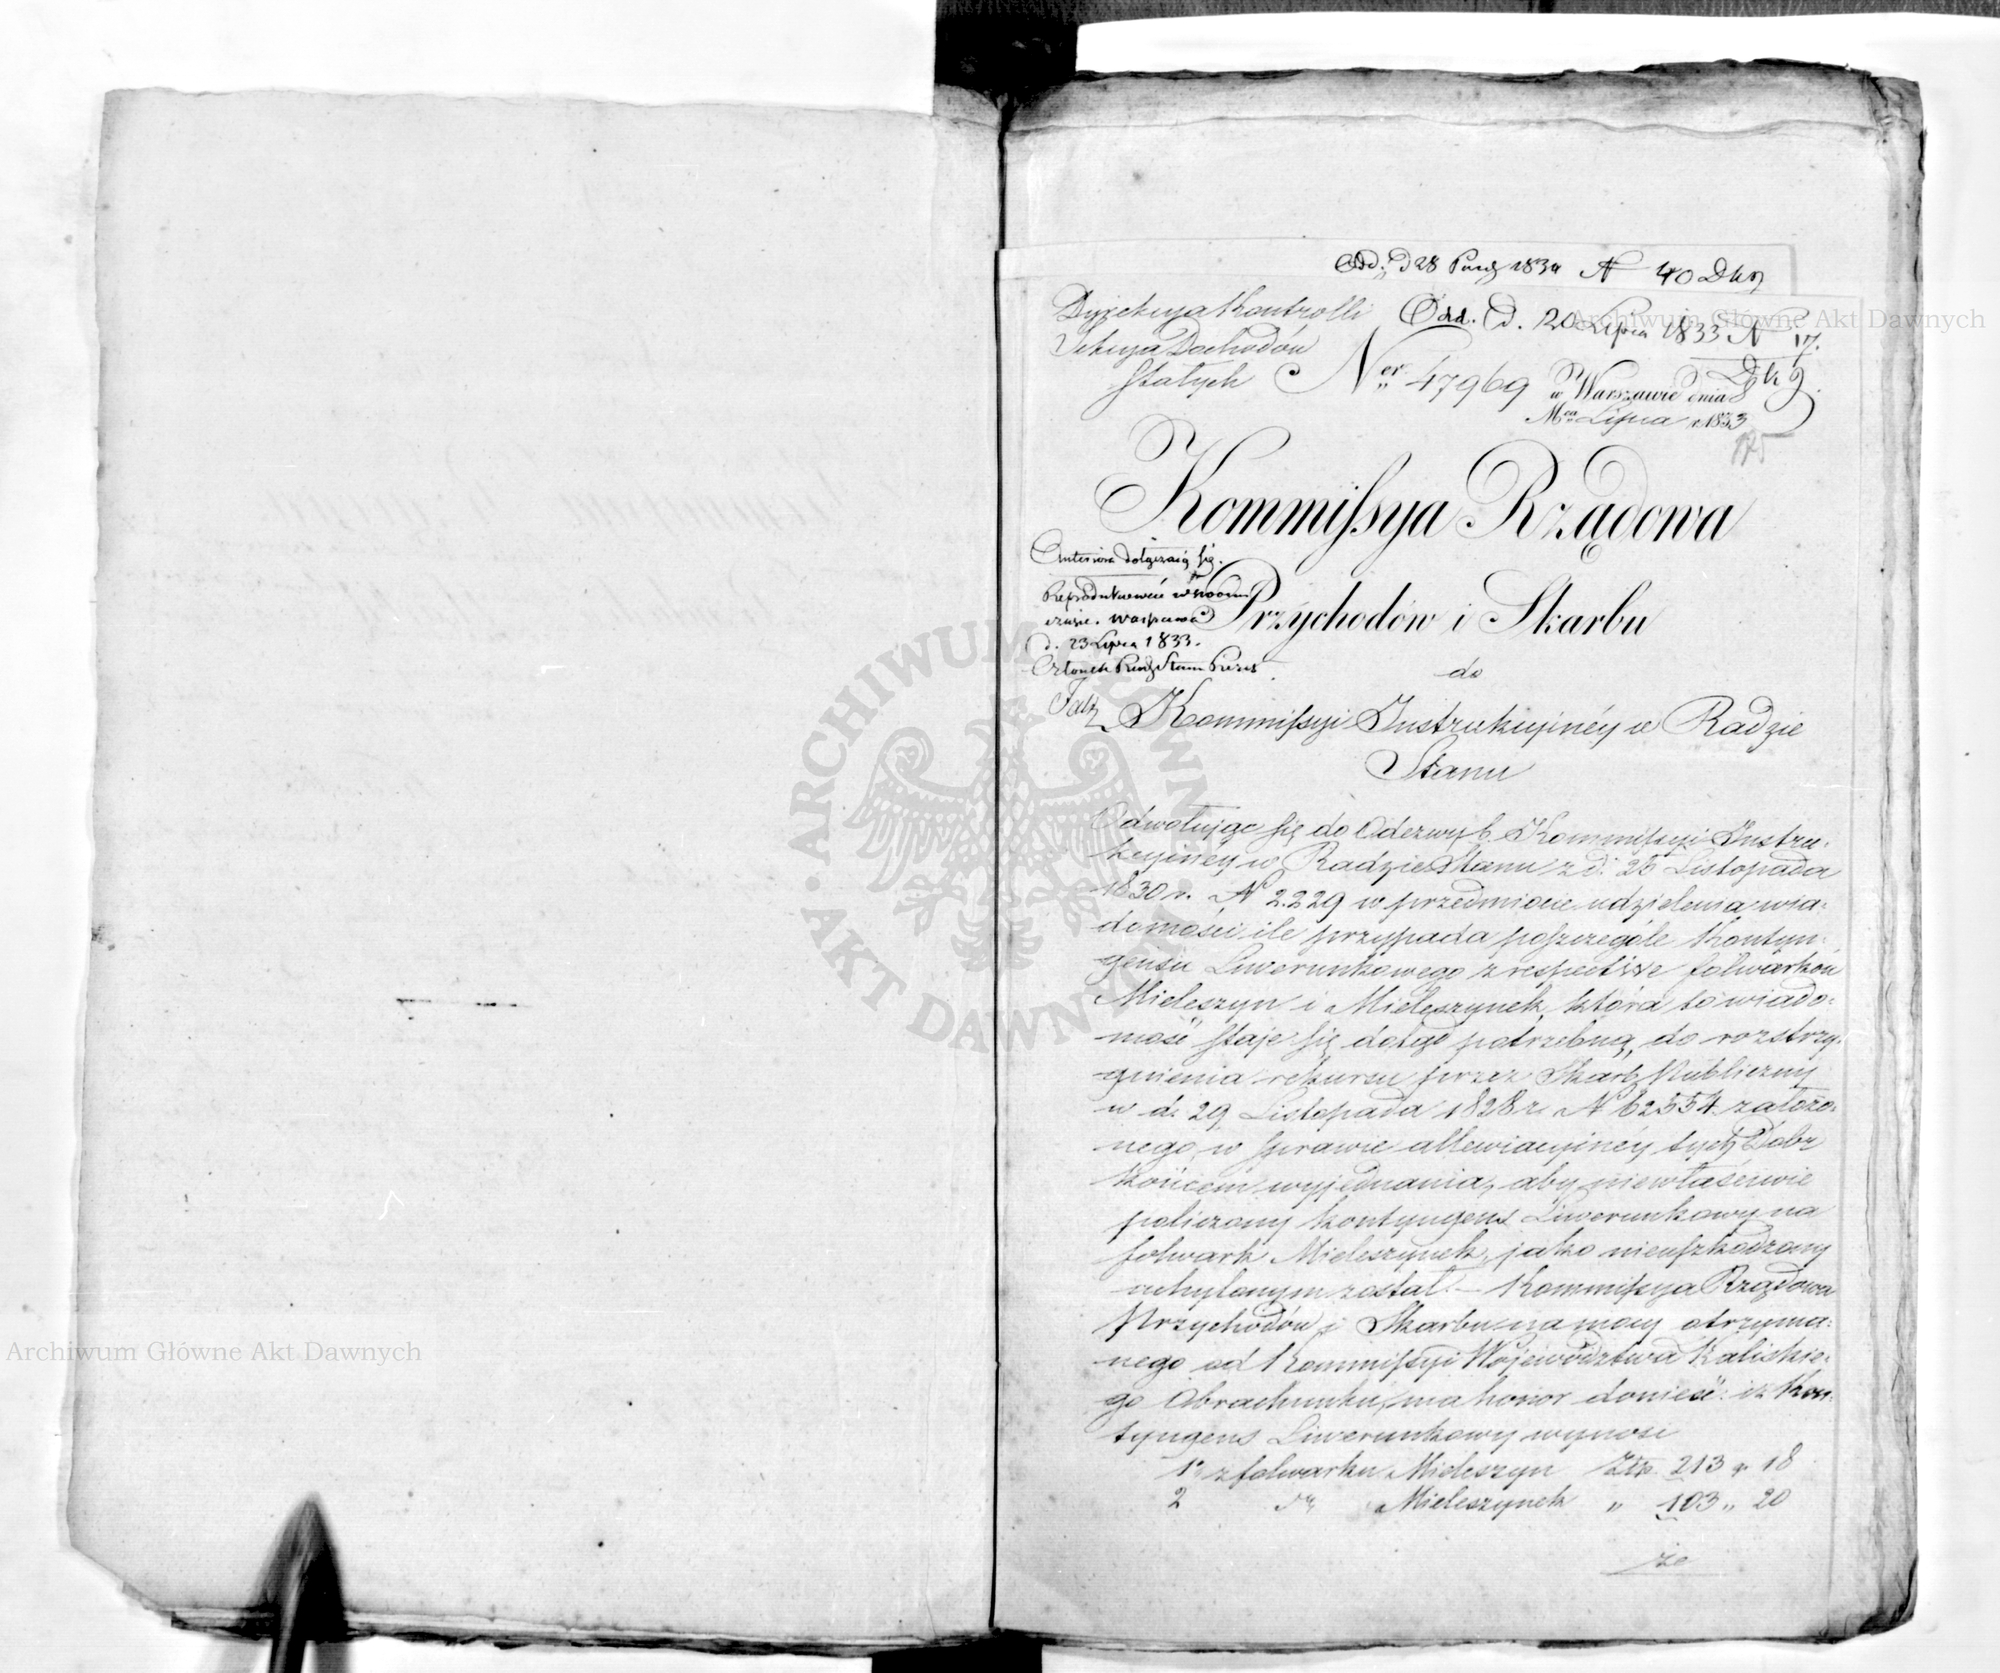 Odd: d 28 Paźdz 1834 N 40 Dkg
Dyrekcya Kontrolli
Sekcya Dochodów
Stałych
Odd. d. 20 Lipca 1833 N 17.
Dkg
Ner 47969
w Warszawie dnia
Mca Lipca r 1833
125
Kommissya Rządowa
Przychodów i Skarbu
Anteriora dołączaią się.
w swoim
czasie. Warszawa
d. 23 Lipca 1833.
Członek Rady Stanu Prezes
do
Kommissyi Instrukcyinéy w Radzie
Stanu
Odwołując się do Odezwy b. Kommissyi Instru-
kcyinéy w Radzie Stanu z d: 25 Listopada
1830 r. N 2229 w przedmiocie udzielenia wia-
domości ile przypada poszczególe Kontyn-
gensu Liwerunkowego z respective folwarków
Mieleszyn i Mieleszynek, która to wiado-
mość staje się dotąd potrzebną, do rozstrzy-
gnienia rekursu przez Skarb Publiczny
w d. 29 Listopada 1828 r. N 62554 założo-
nego w sprawie allewiacyinéy tych Dóbr
końcem wyjednania, aby niewłaściwie
policzony kontyngens Liwerunkowy na
folwark Mieleszynek, jako nieuszkodzony
uchylonym został. – Kommissya Rządowa
Przychodów i Skarbu na mocy otrzyma-
nego od Kommissyi Województwa Kaliskie-
go Obrachunku, ma honor donieść: iż Kon-
tyngens Liwerunkowy wynosi
1o z folwarku Mieleszyn Złp. 213 gr 18
2 Mieleszynek „ 103 „ 20
że
Archiwum Główne Akt Dawnych
Archiwum Główne Akt Dawnych
ARCHIWUM GŁÓWNE · AKT DAWNYCH ·